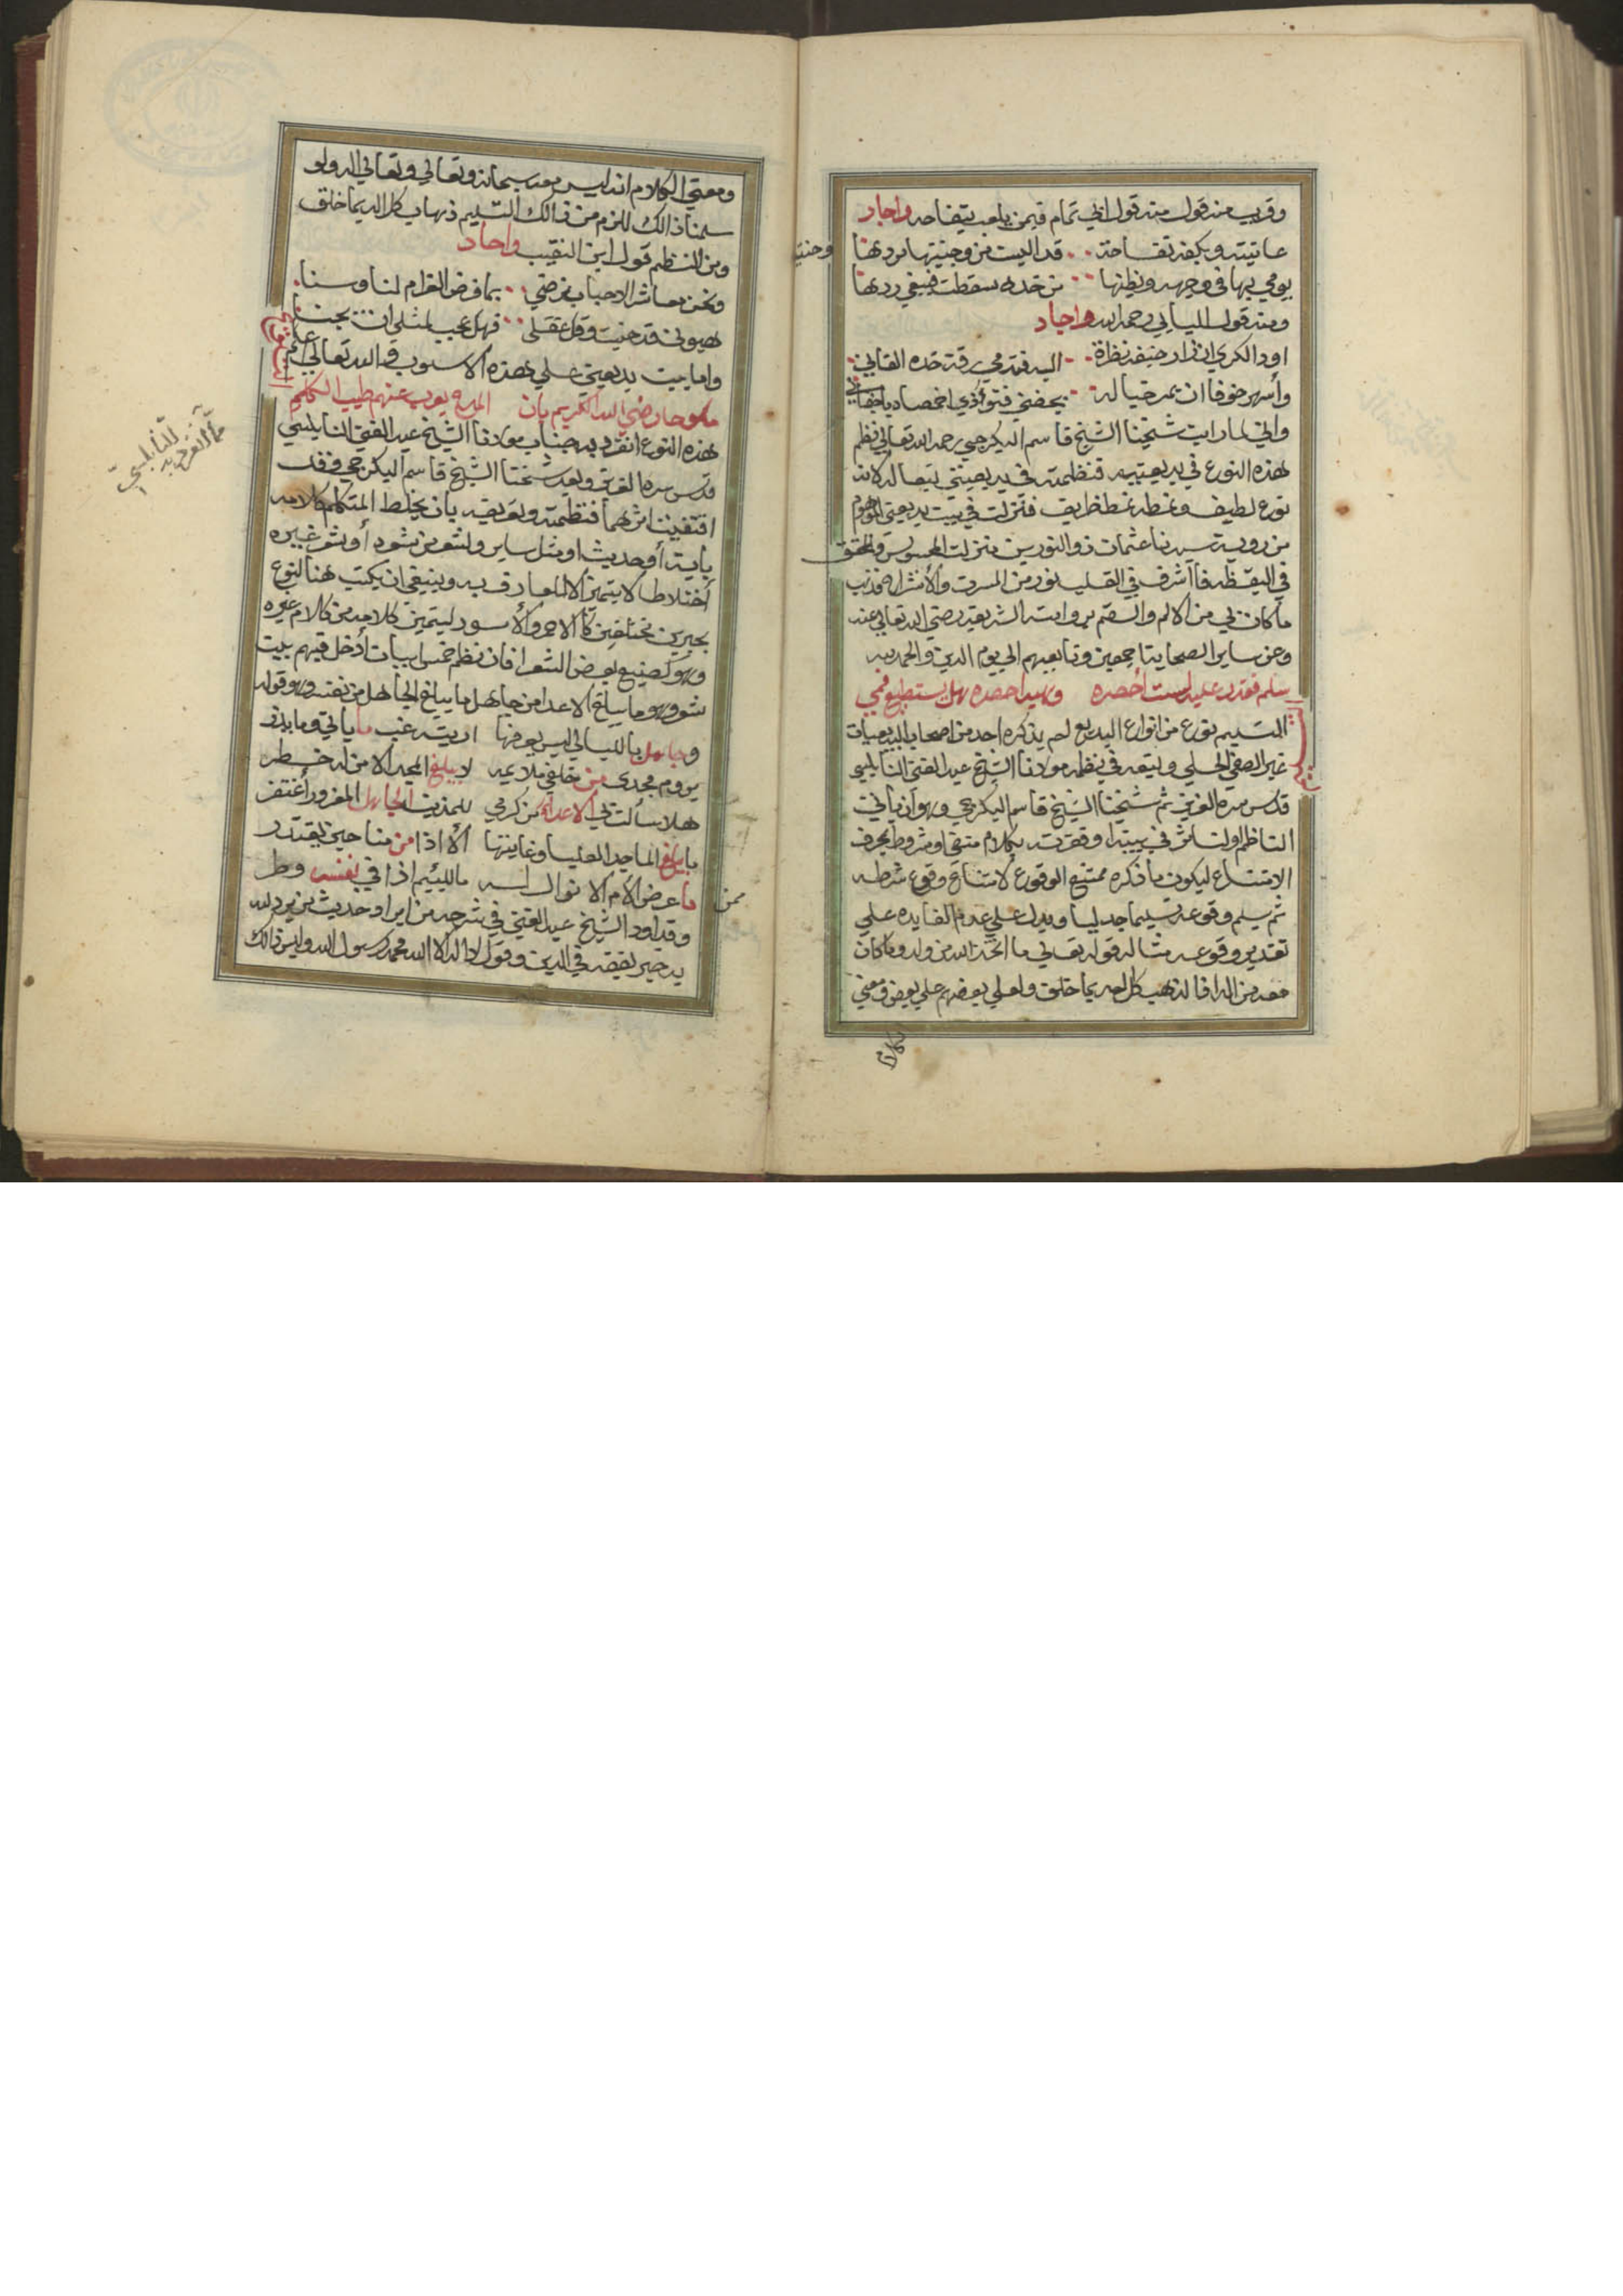 وقريب منه قول منه قول ابي تمام فيمن يلعب بتفاحه واجاد
عاتبته وبكفه تفاحة قد البست من وجنتيها بردها
يومي بها في وجهه وبظنها من خده سقطت فيبغي ردها
ومنه قول رحمه الله واجاد
اود الكري ان زار جنبه نظرة اليه فتدمي رقة خده القاني
وأسهر خوفا ان يمر خياله
واني لما رايت شيخنا الشيخ قاسم البكرجي رحمه الله تعالي نظم
هذه النوع في بديعيته فنظمته في بديعيتي تبعا له لانه
نوع لطيف ونمطه نمط ظريف فنزلت في بيت بديعيتي الموهوم
من روية سيدنا عثمان ذو النورين منزلت المحسوس والمحقق
في اليقظه فاأشرف في القلب نور من المسرت والأنشراح فذهب
ماكان بي من الالم والسقم بروايته الشريفه رضي الله تعالي عنه
وعن ساير الصحابة اجمعين وتابعيهم الي يوم الدين والحمد لله
سلم فقدر عليه لست أحصره وهبه احصره هل يستطيع فمي
التسليم نوع من انواع البديع لم يذكره احد من اصحاب البديعيات
غير الصفي الحلي وتبعه في نظمه مولانا الشيخ عبد الغني النابلسي
قدس سره العزيز ثم شيخنا الشيخ قاسم البكرجي وهو أن يأتي
الناظم او الناثر في بيته او فقرته بكلام منفي او مشروط بحرف
الامتناع ليكون ماذكره ممتنع الوقوع لامتناع وقوع شرطه
ثم يسلم وقوعه تسليما جدليا ويدل علي عدم الفايده علي
تقدير وقوعه مثاله قوله تعالي ما اتخذ الله من ولد وماكان
معه من اله اذا لذهب كل اله بما خلق ولعلي بعضهم علي بعض ومعني
ومعني الكلام انه ليس معه سبحانه وتعالي وتعالي اله ولو
سلمنا ذالك للزم من ذالك التسليم ذهاب كل اله بما خلق
ومن النظم قول ابن النقيب واجاد
ونحن معاشر الاحباب نرضي بما فرض الغرام لنا وسنا
فهل عجب لمثلي ان يجنا
واما بيت بديعيتي علي هذه الاسلوب والله تعالي أعلم
هذه النوع انفرد به جناب مولانا الشيخ عبد الغني النابلسي
قدس سره العزيز وبعده شيخنا الشيخ قاسم البكرجي وقد
اقتفيت اثرهما فنظمته وتعريفه بان يخلط المتكلم كلامه
بآية أو حديث او مثل ساير ولشعر من شعره أو شعر غيره
أختلاطا لا يتميز الا للعارف به وينبغي ان يكتب هذا النوع
بحبرين مختلفين كالاحمر والأسود ليتميز كلامه من كلام غيره
وهو كصنيع بعض الشعرا فانه نظم خمس ابيات أدخل فيهم بيت
شعر وهو ما يبلغ الاعدا من جاهل ما يبلغ الجاهل من نفسه وهو قوله
وجاهل بالليالي ليس يعرفها اريته غب ما ياتي وما يذر
يروم مجدي من خلفي لا يبلغ المجد الا من له خطر
هلا سألت بي الاعداء من كرمي للمذنب الجاهل المغرور أغتفر
ما يبلغ الماجد العليا وغايتها الا اذا من منا حين يقتدر
وقد اورد الشيخ عبد الغني في شرحه من ايراد حديث من يرد الله
به خير يفقهه في الدين وقول لا اله الا الله محمد رسول الله وليس ذالك